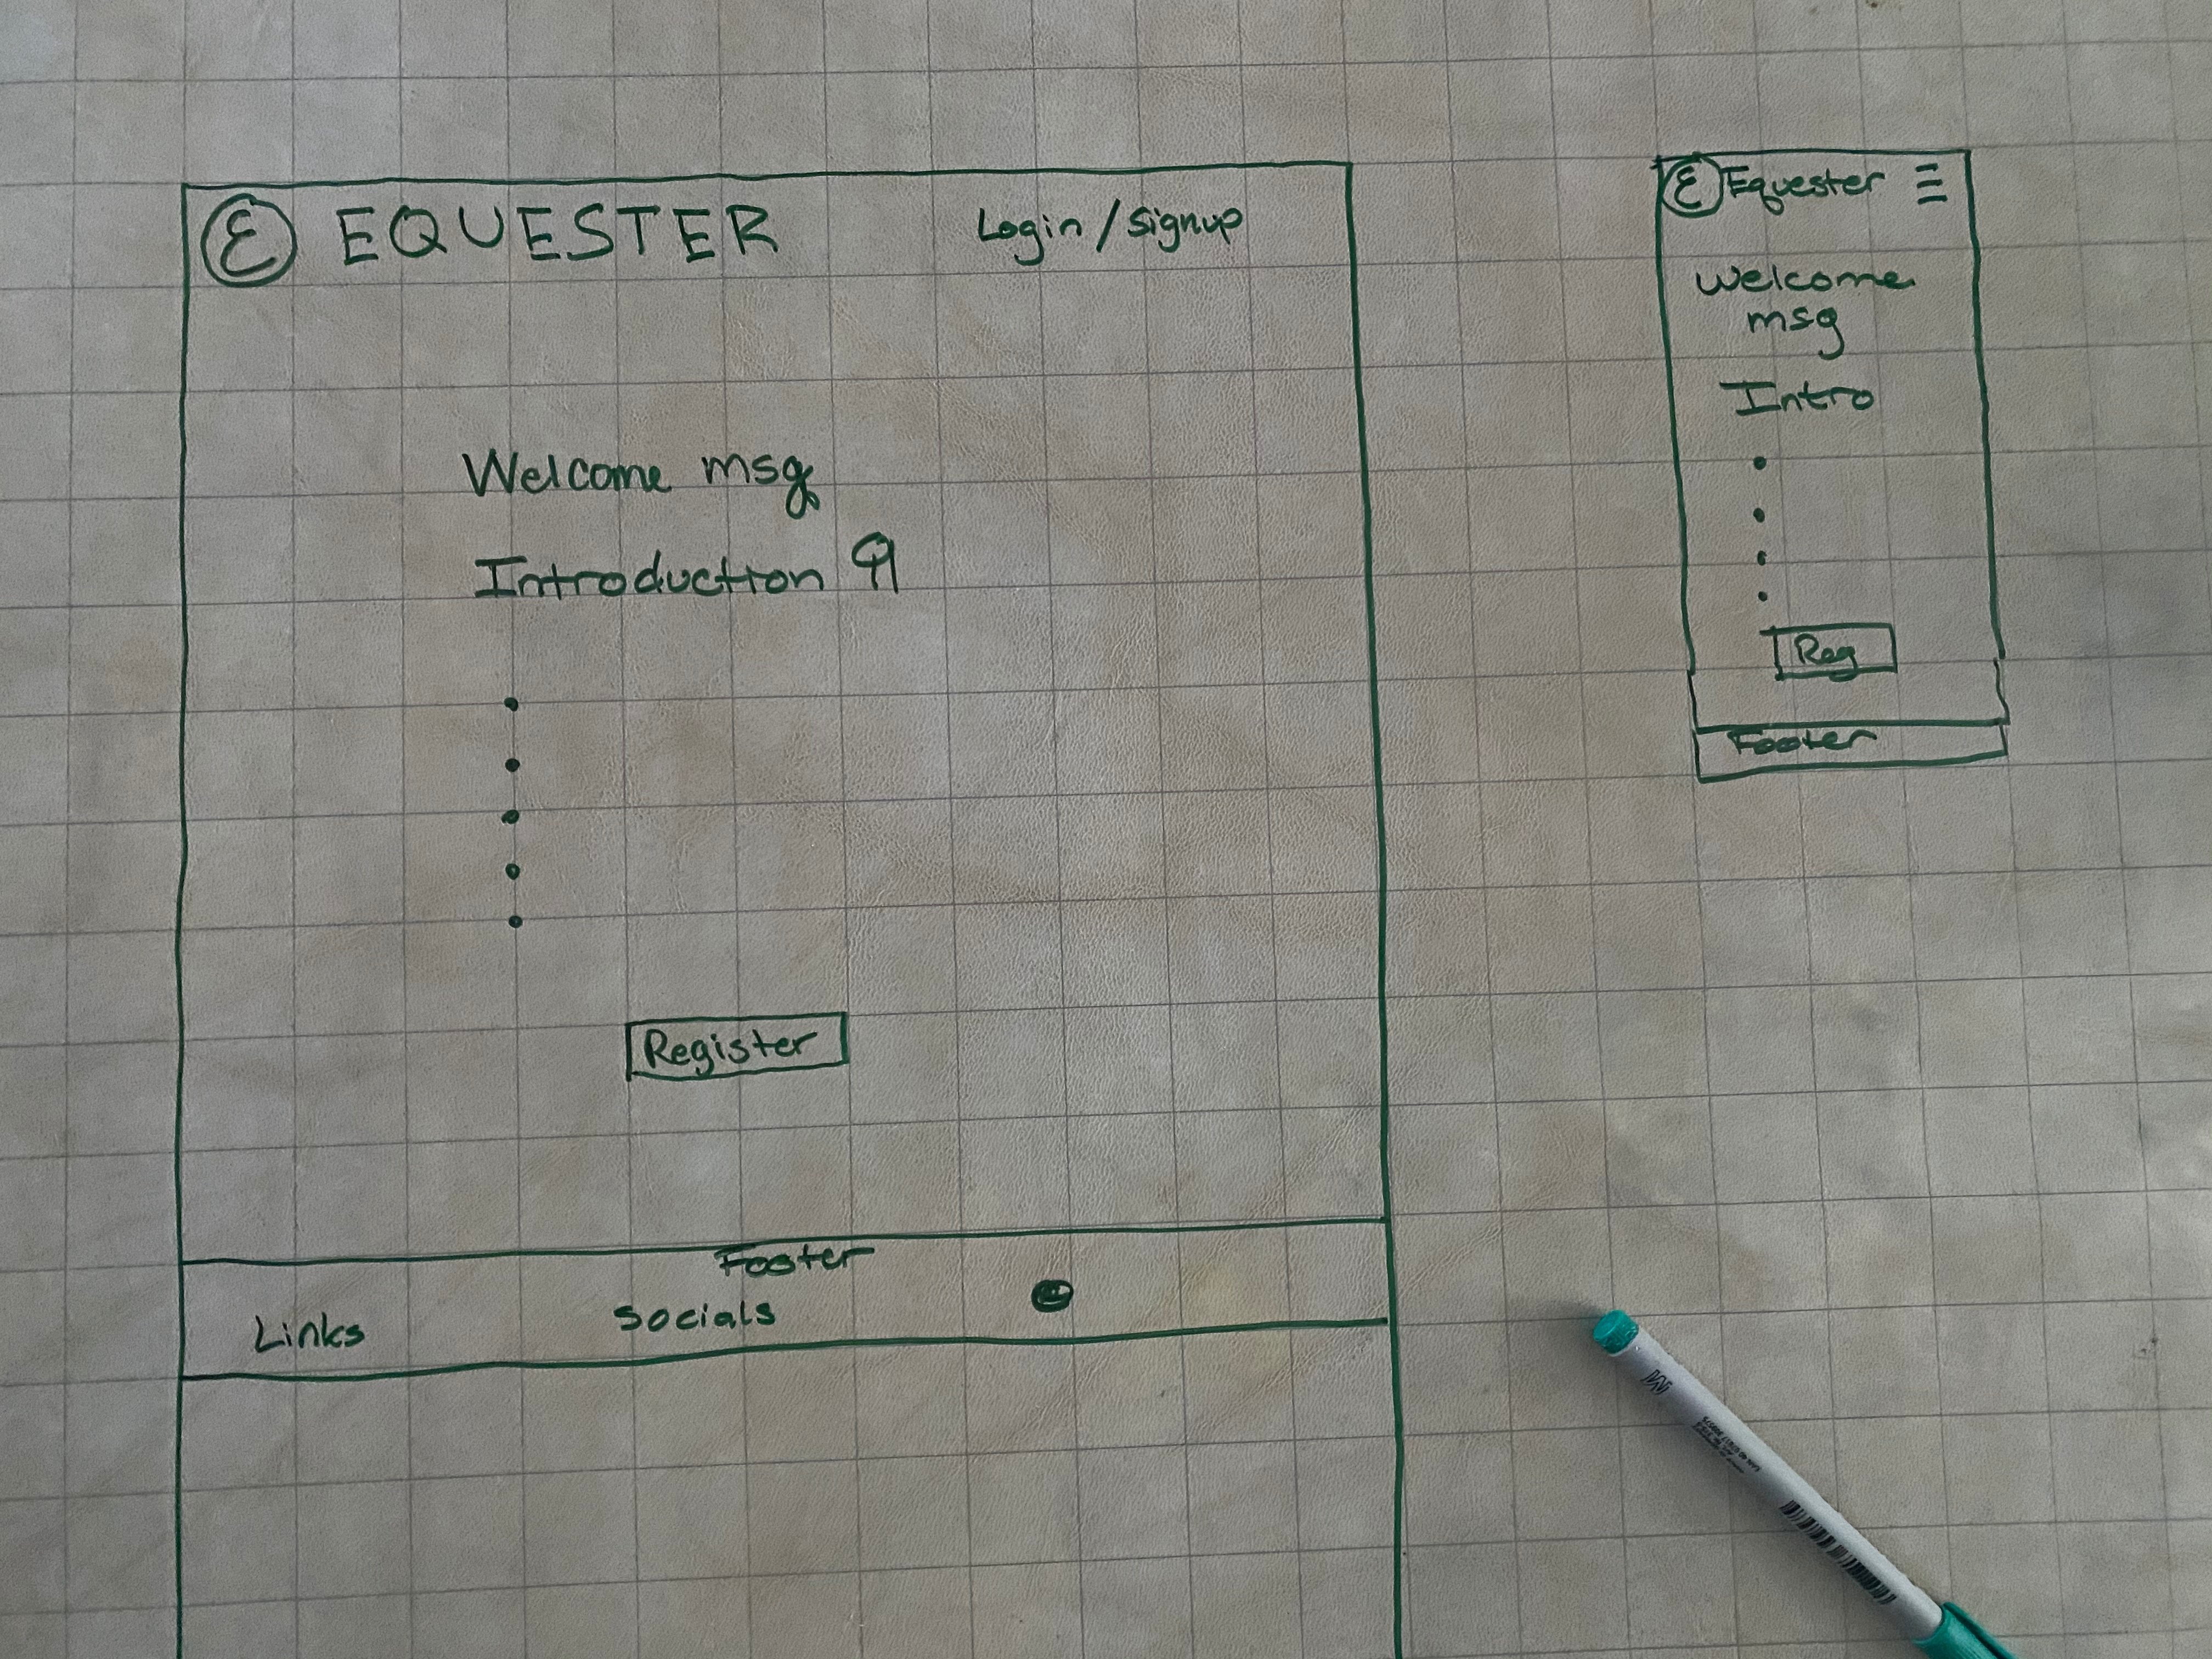 Ɛ EQUESTER Login / Signup
Welcome msg
Introduction ¶
• 
•
•
•
•
Register
Footer
Links Socials
Ɛ Equester ☰
Welcome
msg
Intro
•
•
•
•
Reg
Footer